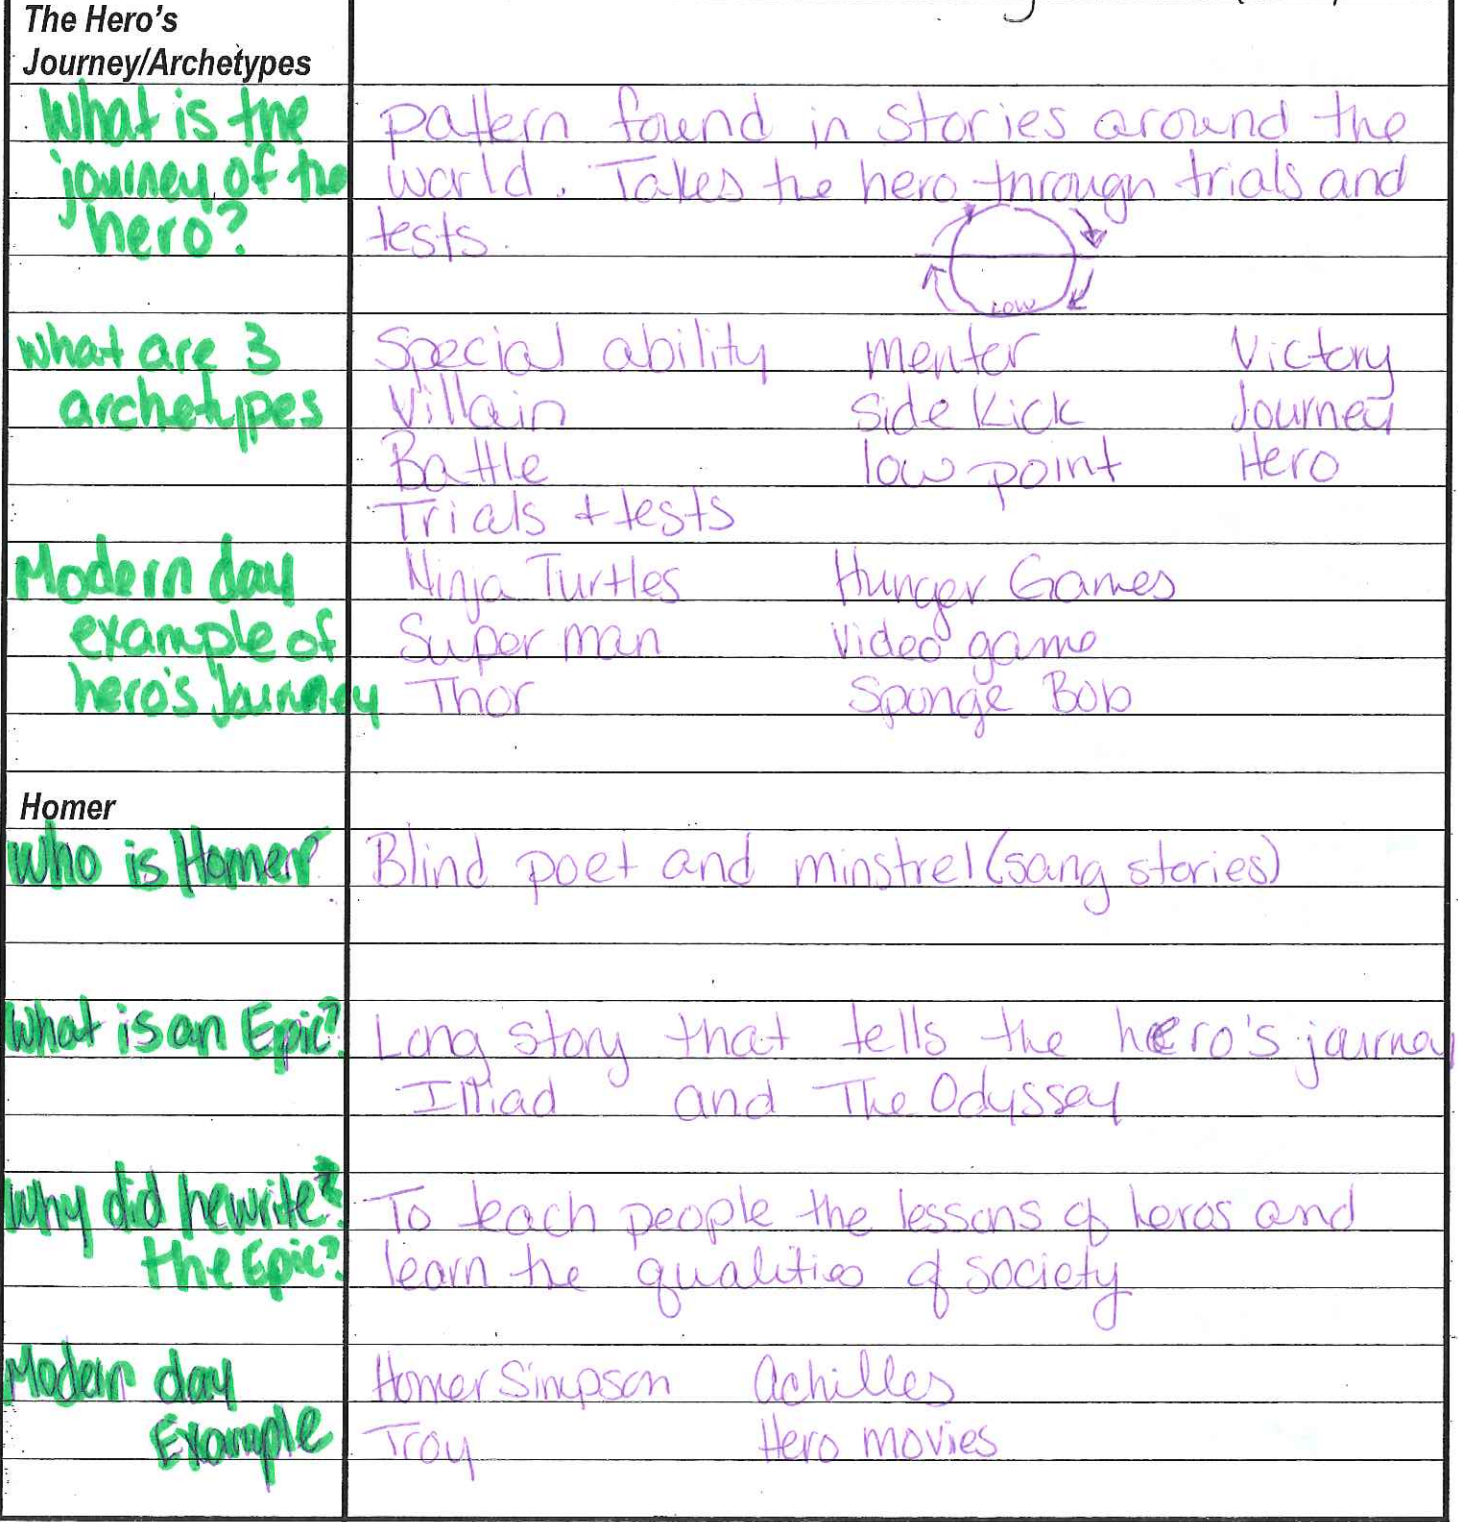 The Hero's
Journey/Archetypes
What is the
journey of the
hero?
pattern found in stories around the
world. Takes the hero through trials and
tests.
Low
what are 3
archetypes
Special ability menter Victory
Villain Side Kick Journey
Battle low point Hero
Trials + tests
Modern day
example of
hero's Journey
Ninja Turtles Hunger Games
Super man Video game
Thor Sponge Bob
Homer
Who is Homer?
Blind poet and minstrel (sang stories)
What is an Epic?
Long story that tells the hero's journey
Illiad and The Odyssey
Why did he write?
the Epic?
To teach people the lessons of heros and
learn the qualities of society
Modern day
Example
Homer Simpson Achilles
Troy Hero movies